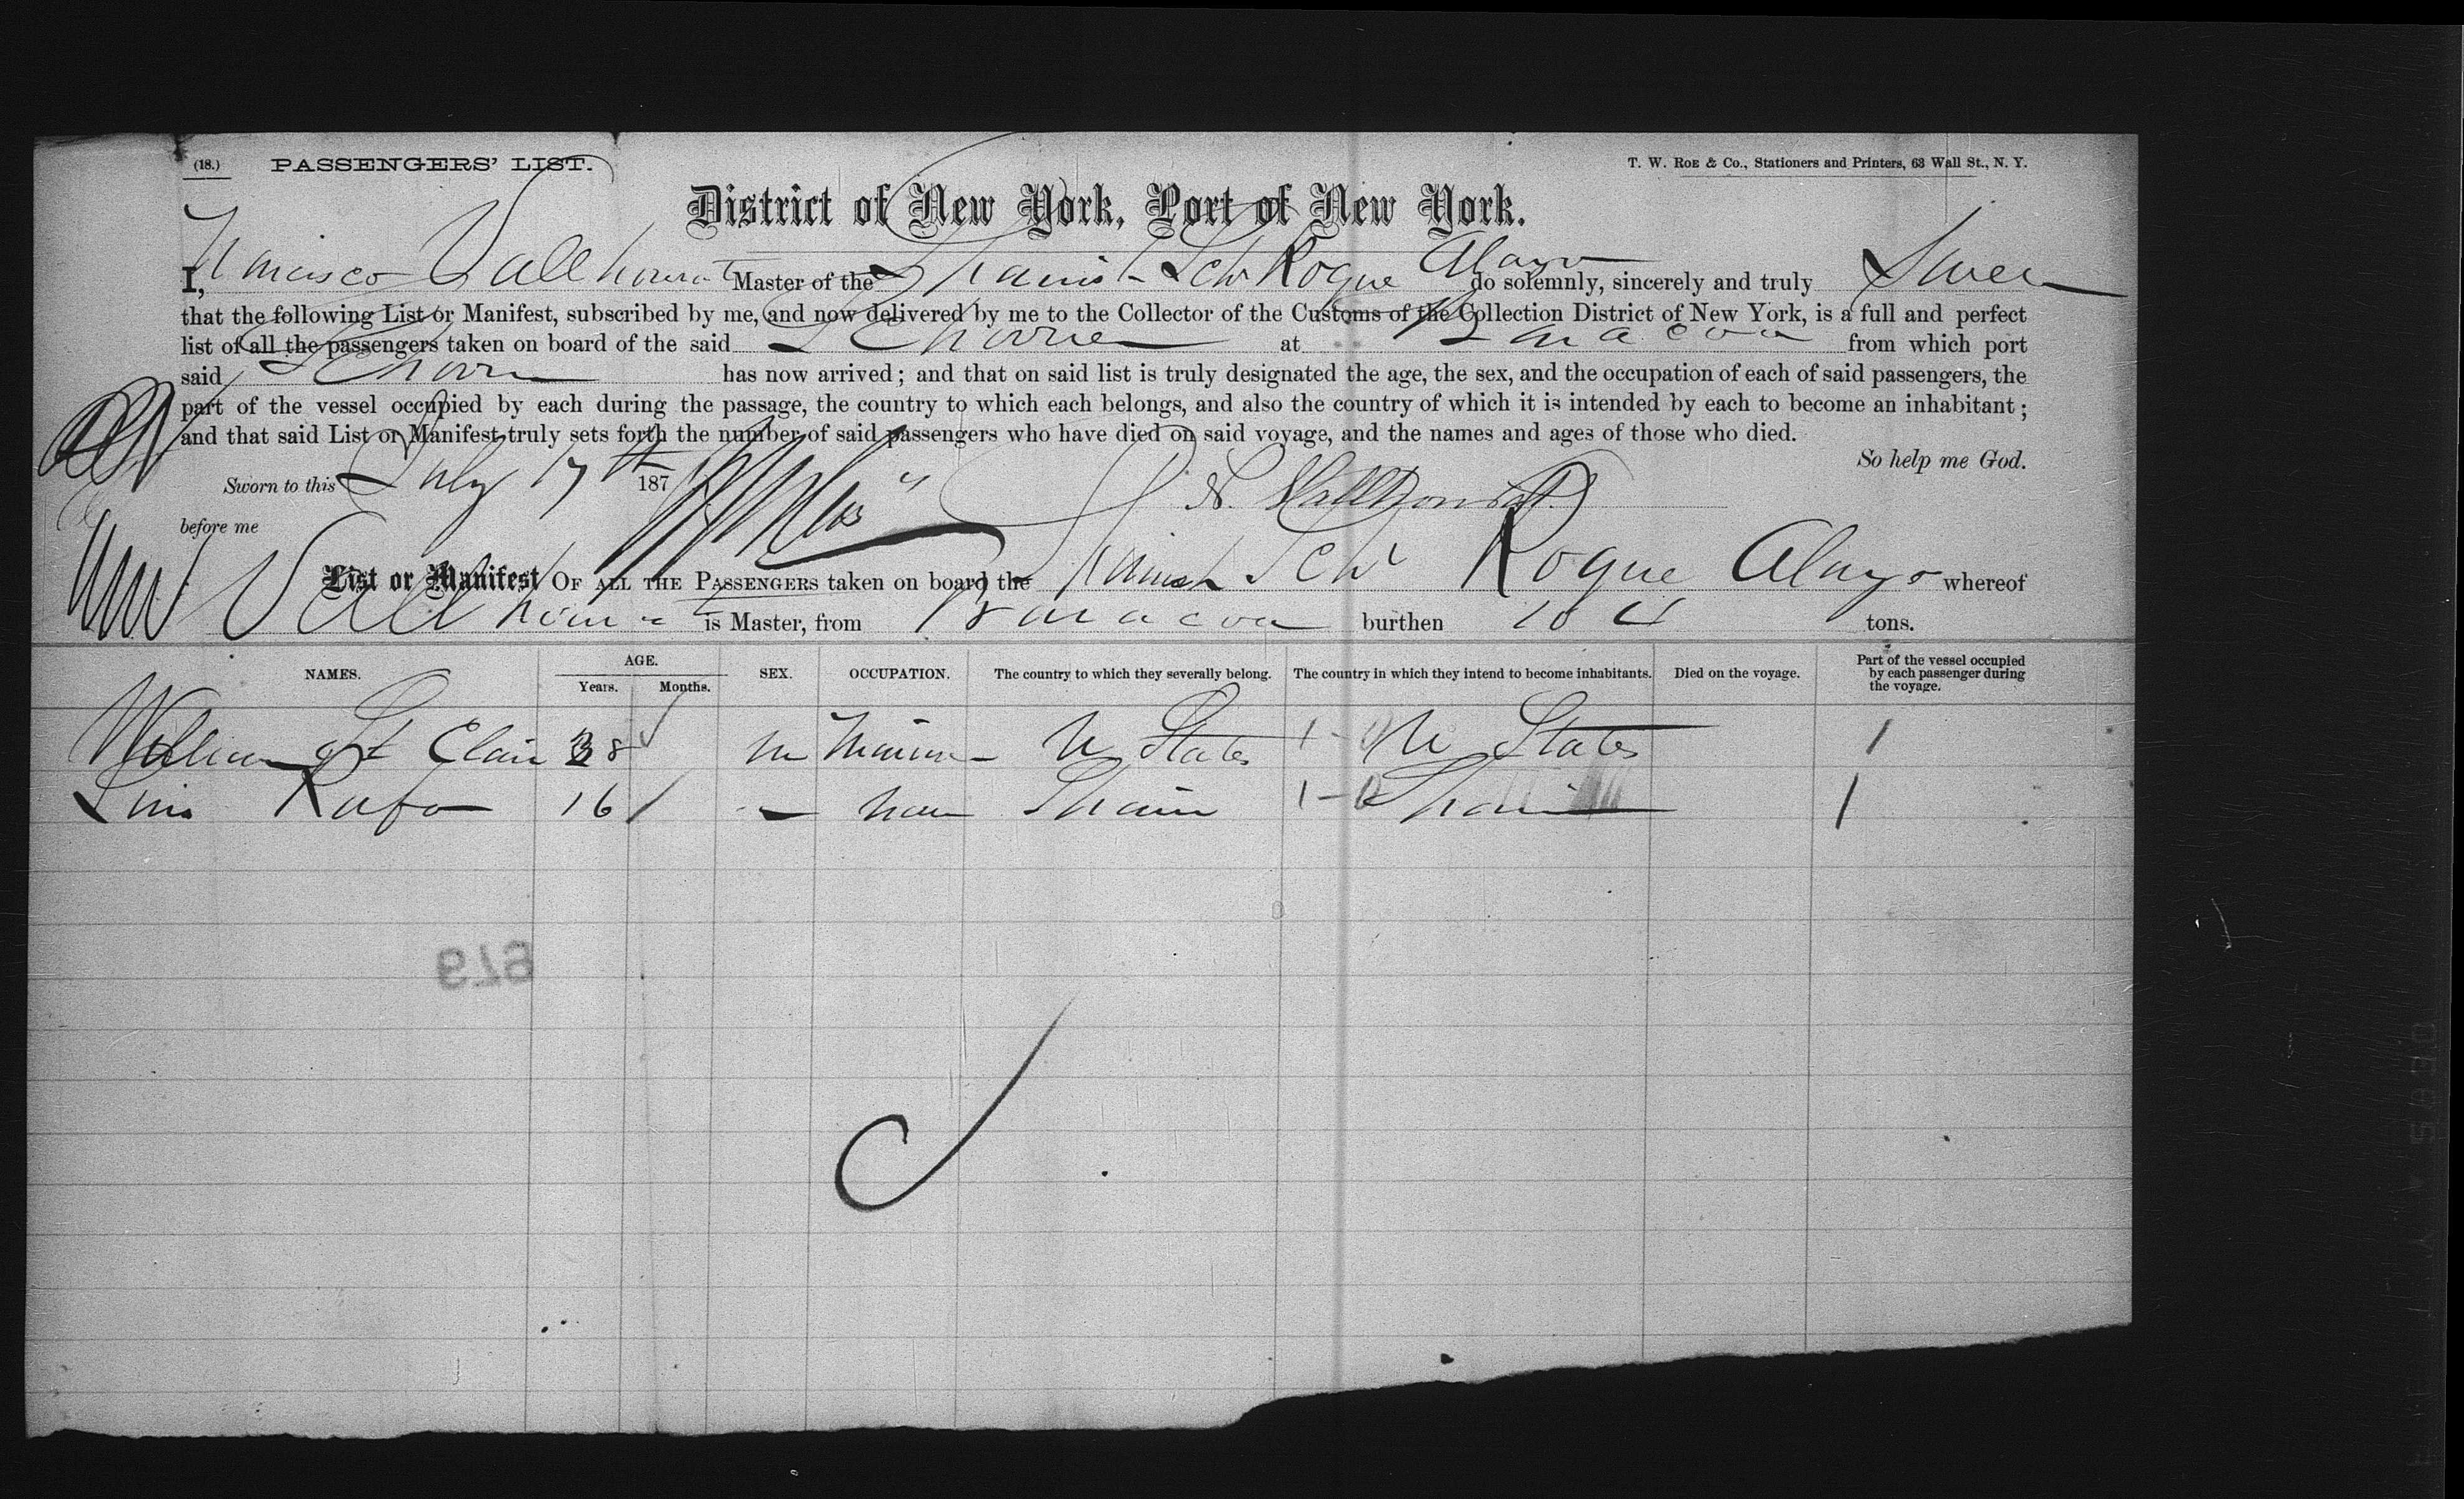 (18.) PASSENGERS' LIST. T. W. ROE & Co., Stationers and Printers, 63 Wall St., N. Y.
District of New York, Port of New York.
I, Narcisco Vallhonrat Master of the Spanish Schr Roque Alayo do solemnly, sincerely and truly Swear
that the following List or Manifest, subscribed by me, and now delivered by me to the Collector of the Customs of the Collection District of New York, is a full and perfect
list of all the passengers taken on board of the said Schooner at Baracoa from which port
said Schooner has now arrived; and that on said list is truly designated the age, the sex, and the occupation of each of said passengers, the
part of the vessel occupied by each during the passage, the country to which each belongs, and also the country of which it is intended by each to become an inhabitant;
and that said List or Manifest truly sets forth the number of said passengers who have died on said voyage, and the names and ages of those who died.
So help me God.
Sworn to this July 17th 187 N. Vallhonrat
before me
List or Manifest OF ALL THE PASSENGERS taken on board the Spanish Schr Roque Alayo whereof
Vallhonrat is Master, from Baracoa burthen tons.
NAMES. AGE. Years. Months. SEX. OCCUPATION. The country to which they severally belong. The country in which they intend to become inhabitants. Died on the voyage. Part of the vessel occupied by each passenger during the voyage.
William St Clair 38 m Mariner U States U States 1
Luis Rufo 16 - none Spain Spain 1
679